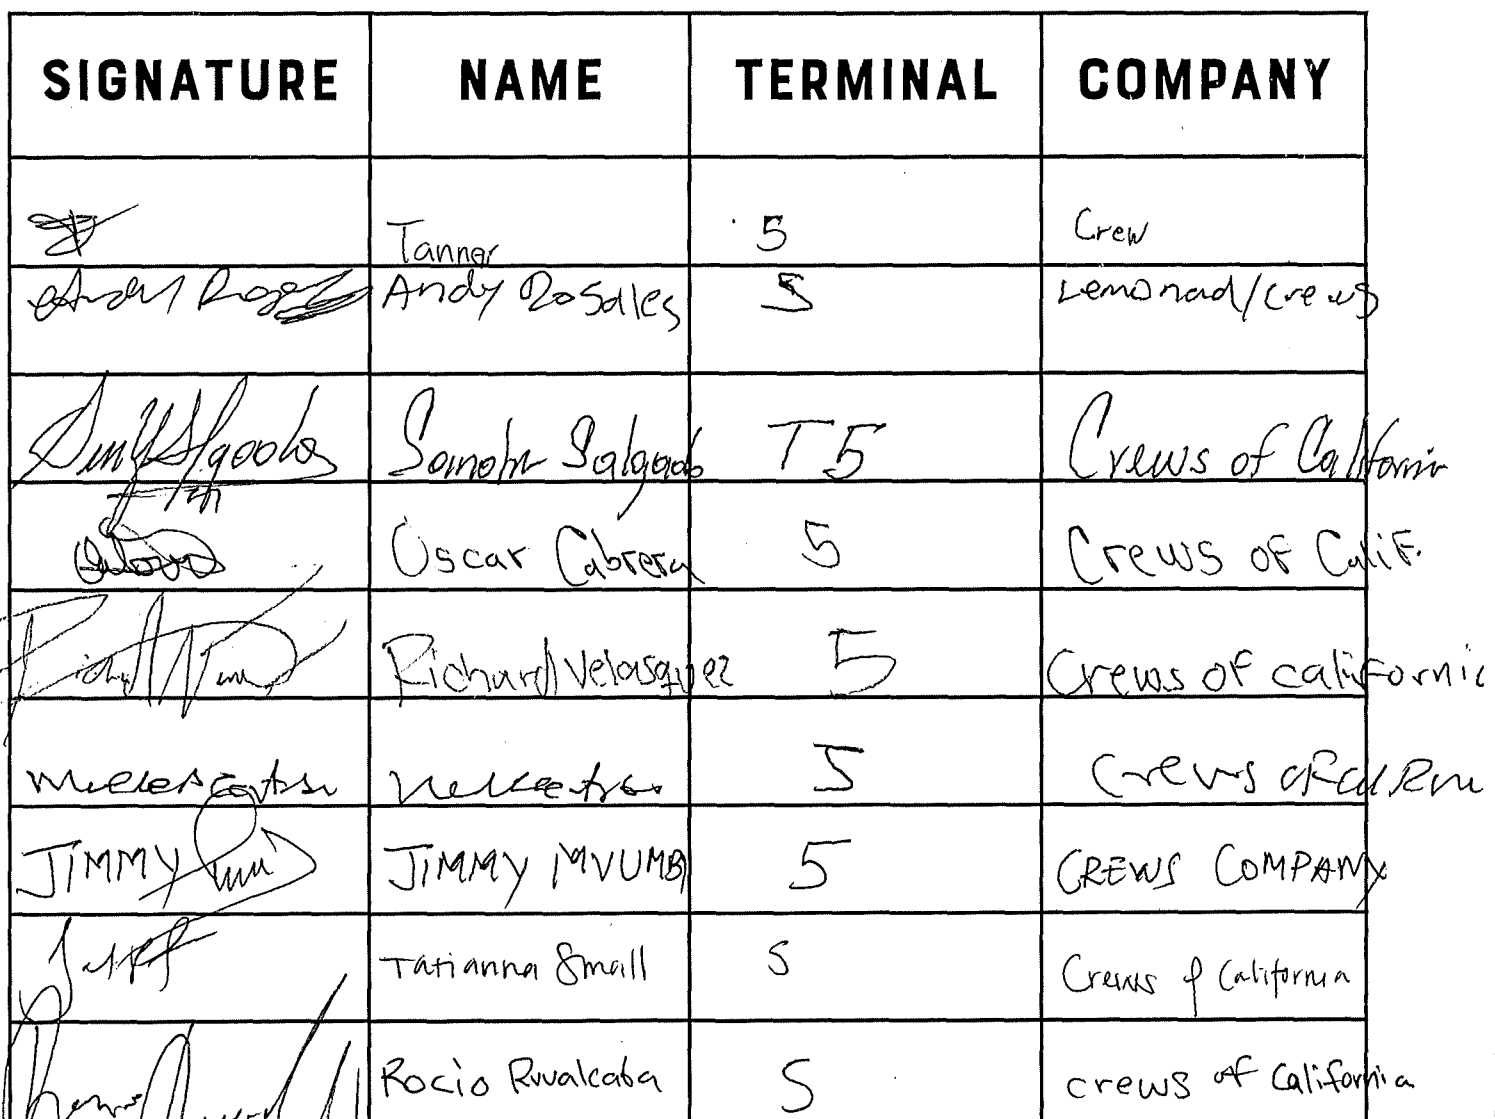 SIGNATURE NAME TERMINAL COMPANY
Tanner 5 Crew
Andy Rosales Andy Rosales 5 Lemonad/crews
Salgado T5 Crews of California
Oscar Cabrera 5 Crews of Calif.
Richard Velasquez 5 Crews of california
5 Crews of
JIMMY JIMMY MVUMBI 5 CREWS COMPANY
Tatianna Small 5 Crews of California
Rocio Ruvalcaba 5 crews of California